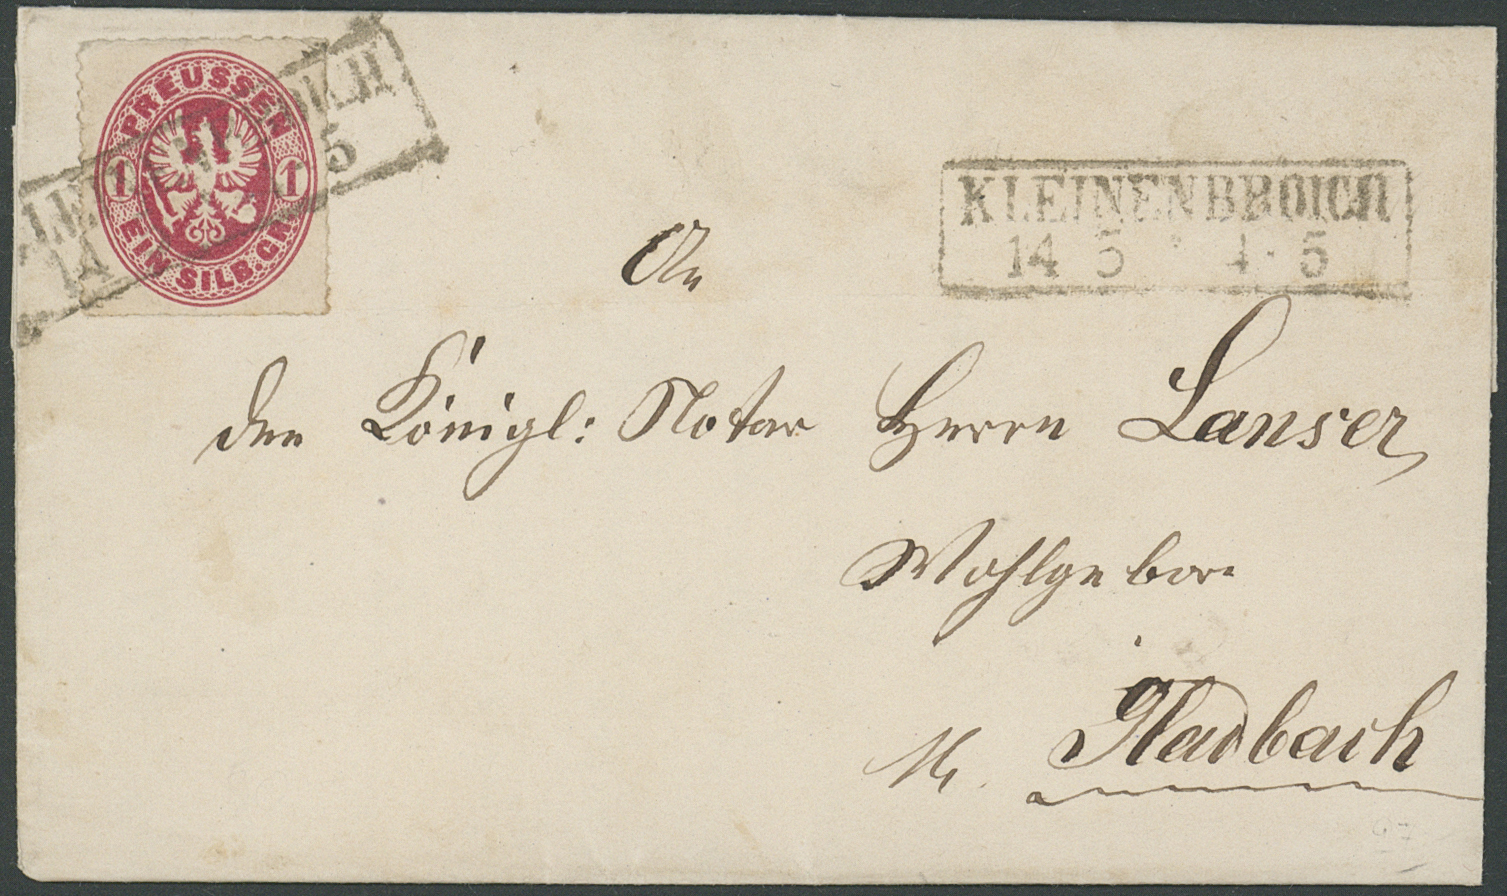 PREUSSEN
1 1
EIN SILB. GR.
14 5
KLEINENBROICH
14 5 * 4 - 5
An
den Königl: Notar Herrn Lanser
Wohlgebor.
M. Gladbach